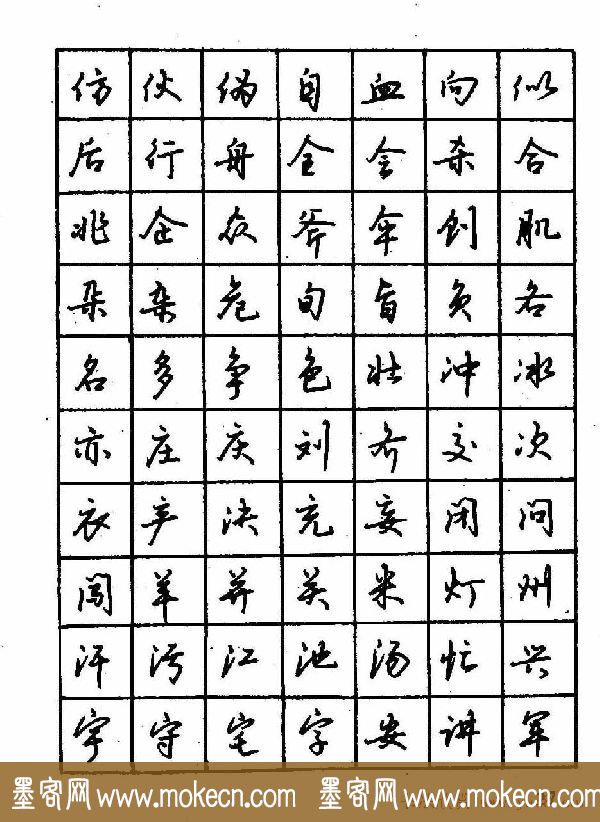 仿 伙 伪 自 血 向 似
后 行 舟 全 会 杀 合
兆 企 众 爷 伞 创 肌
朵 杂 危 旬 旨 负 各
名 多 争 色 壮 冲 冰
亦 庄 庆 刘 齐 交 次
衣 产 决 充 妄 闭 问
闯 羊 并 关 米 灯 州
汗 污 江 池 汤 忙 兴
宇 守 宅 字 安 讲 军
墨客网 www.mokecn.com 墨客网 www.mokecn.com